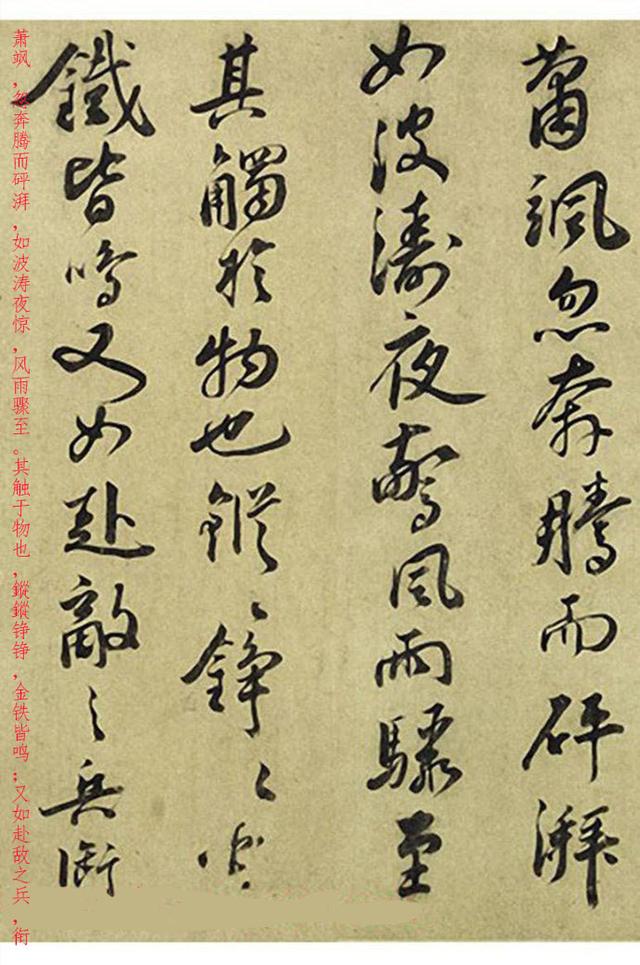 蕭颯忽奔騰而砰湃
如波濤夜驚風雨驟至
其觸於物也鏦〻錚〻金
鐵皆鳴又如赴敵之兵銜
萧飒,忽奔腾而砰湃,如波涛夜惊,风雨骤至。其触于物也,鏦鏦铮铮,金铁皆鸣;又如赴敌之兵,衔